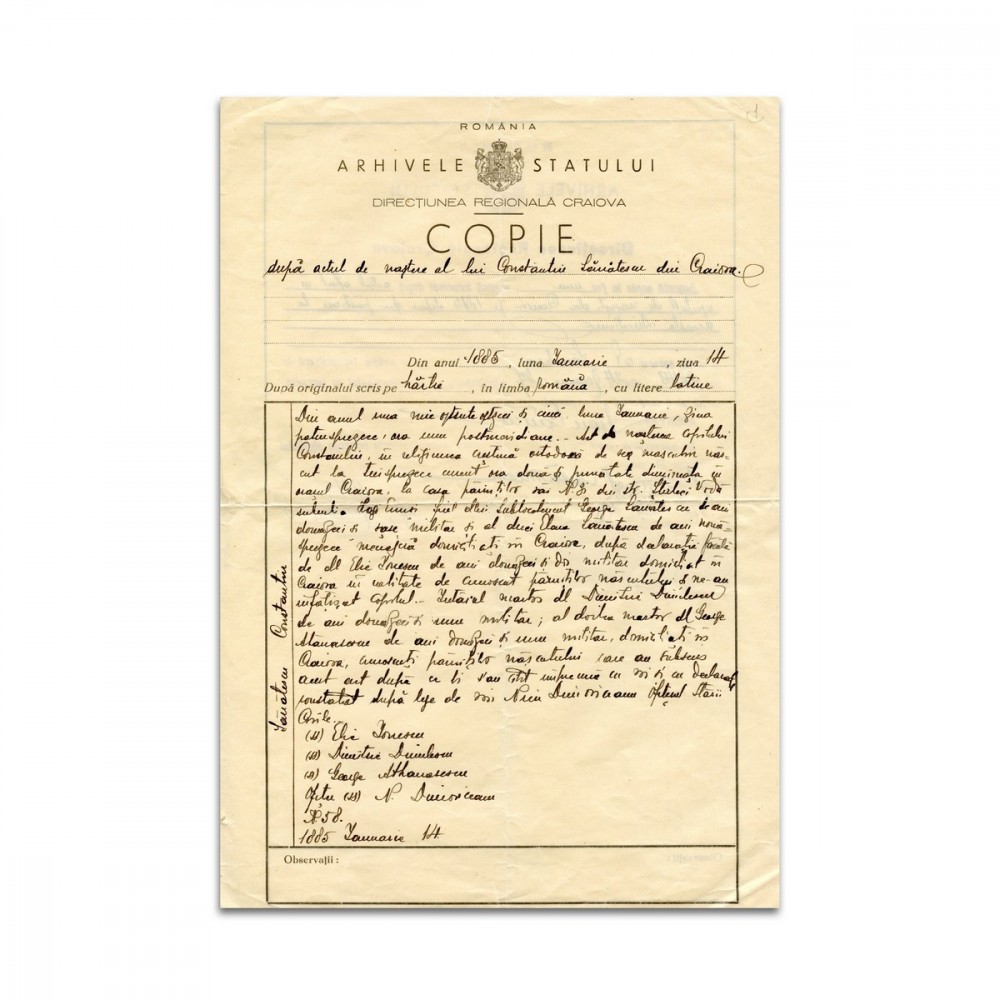 ROMÂNIA
ARHIVELE STATULUI
DIRECȚIUNEA REGIONALĂ CRAIOVA
COPIE
după actul de naștere al lui Constantin Sănătescu din Craiova.
Din anul 1885, luna Ianuarie, ziua 14
După originalul scris pe hârtie, în limba română, cu litere latine
Din anul una mie optsute optzeci și cinci luna Ianuarie, ziua
patrusprezece, ora una postmeridiane. - Act de nașterea copilului
Constantin, de religiunea creștină ortodoxă de sex masculin năs-
cut la treisprezece curent ora două și jumătate dimineața în
orașul Craiova, la casa părinților săi N. 31 din str. Știrbei Vodă
fiul dlui Sublocotenent George Sănătescu de ani
douăzeci și șase militar și al dnei Elena Sănătescu de ani nouă-
sprezece menajeră domiciliați în Craiova, după declarația făcută
de dl Elie Ionescu de ani douăzeci și doi militar domiciliat în
Craiova în calitate de cunoscut părinților născutului și ne-au
înfățizat copilul. - Întâiul martor dl Dimitrie Dumitrescu
de ani douăzeci și unu militar; al doilea martor dl George
Atanasescu de ani douăzeci și unu militar, domiciliați în
Craiova, cunoscuți părinților născutului care au subscris
acest act după ce li s'au citit împreună cu noi și cu declarat
constatat după lege de noi Nicu Ofițerul Stării
Civile.
(ss) Elie Ionescu
(ss) Dimitrie Dumitrescu
(ss) George Athanasescu
Ofițer (ss) N.
N. 58.
1885 Ianuarie 14
Sănătescu Constantin
Observații :